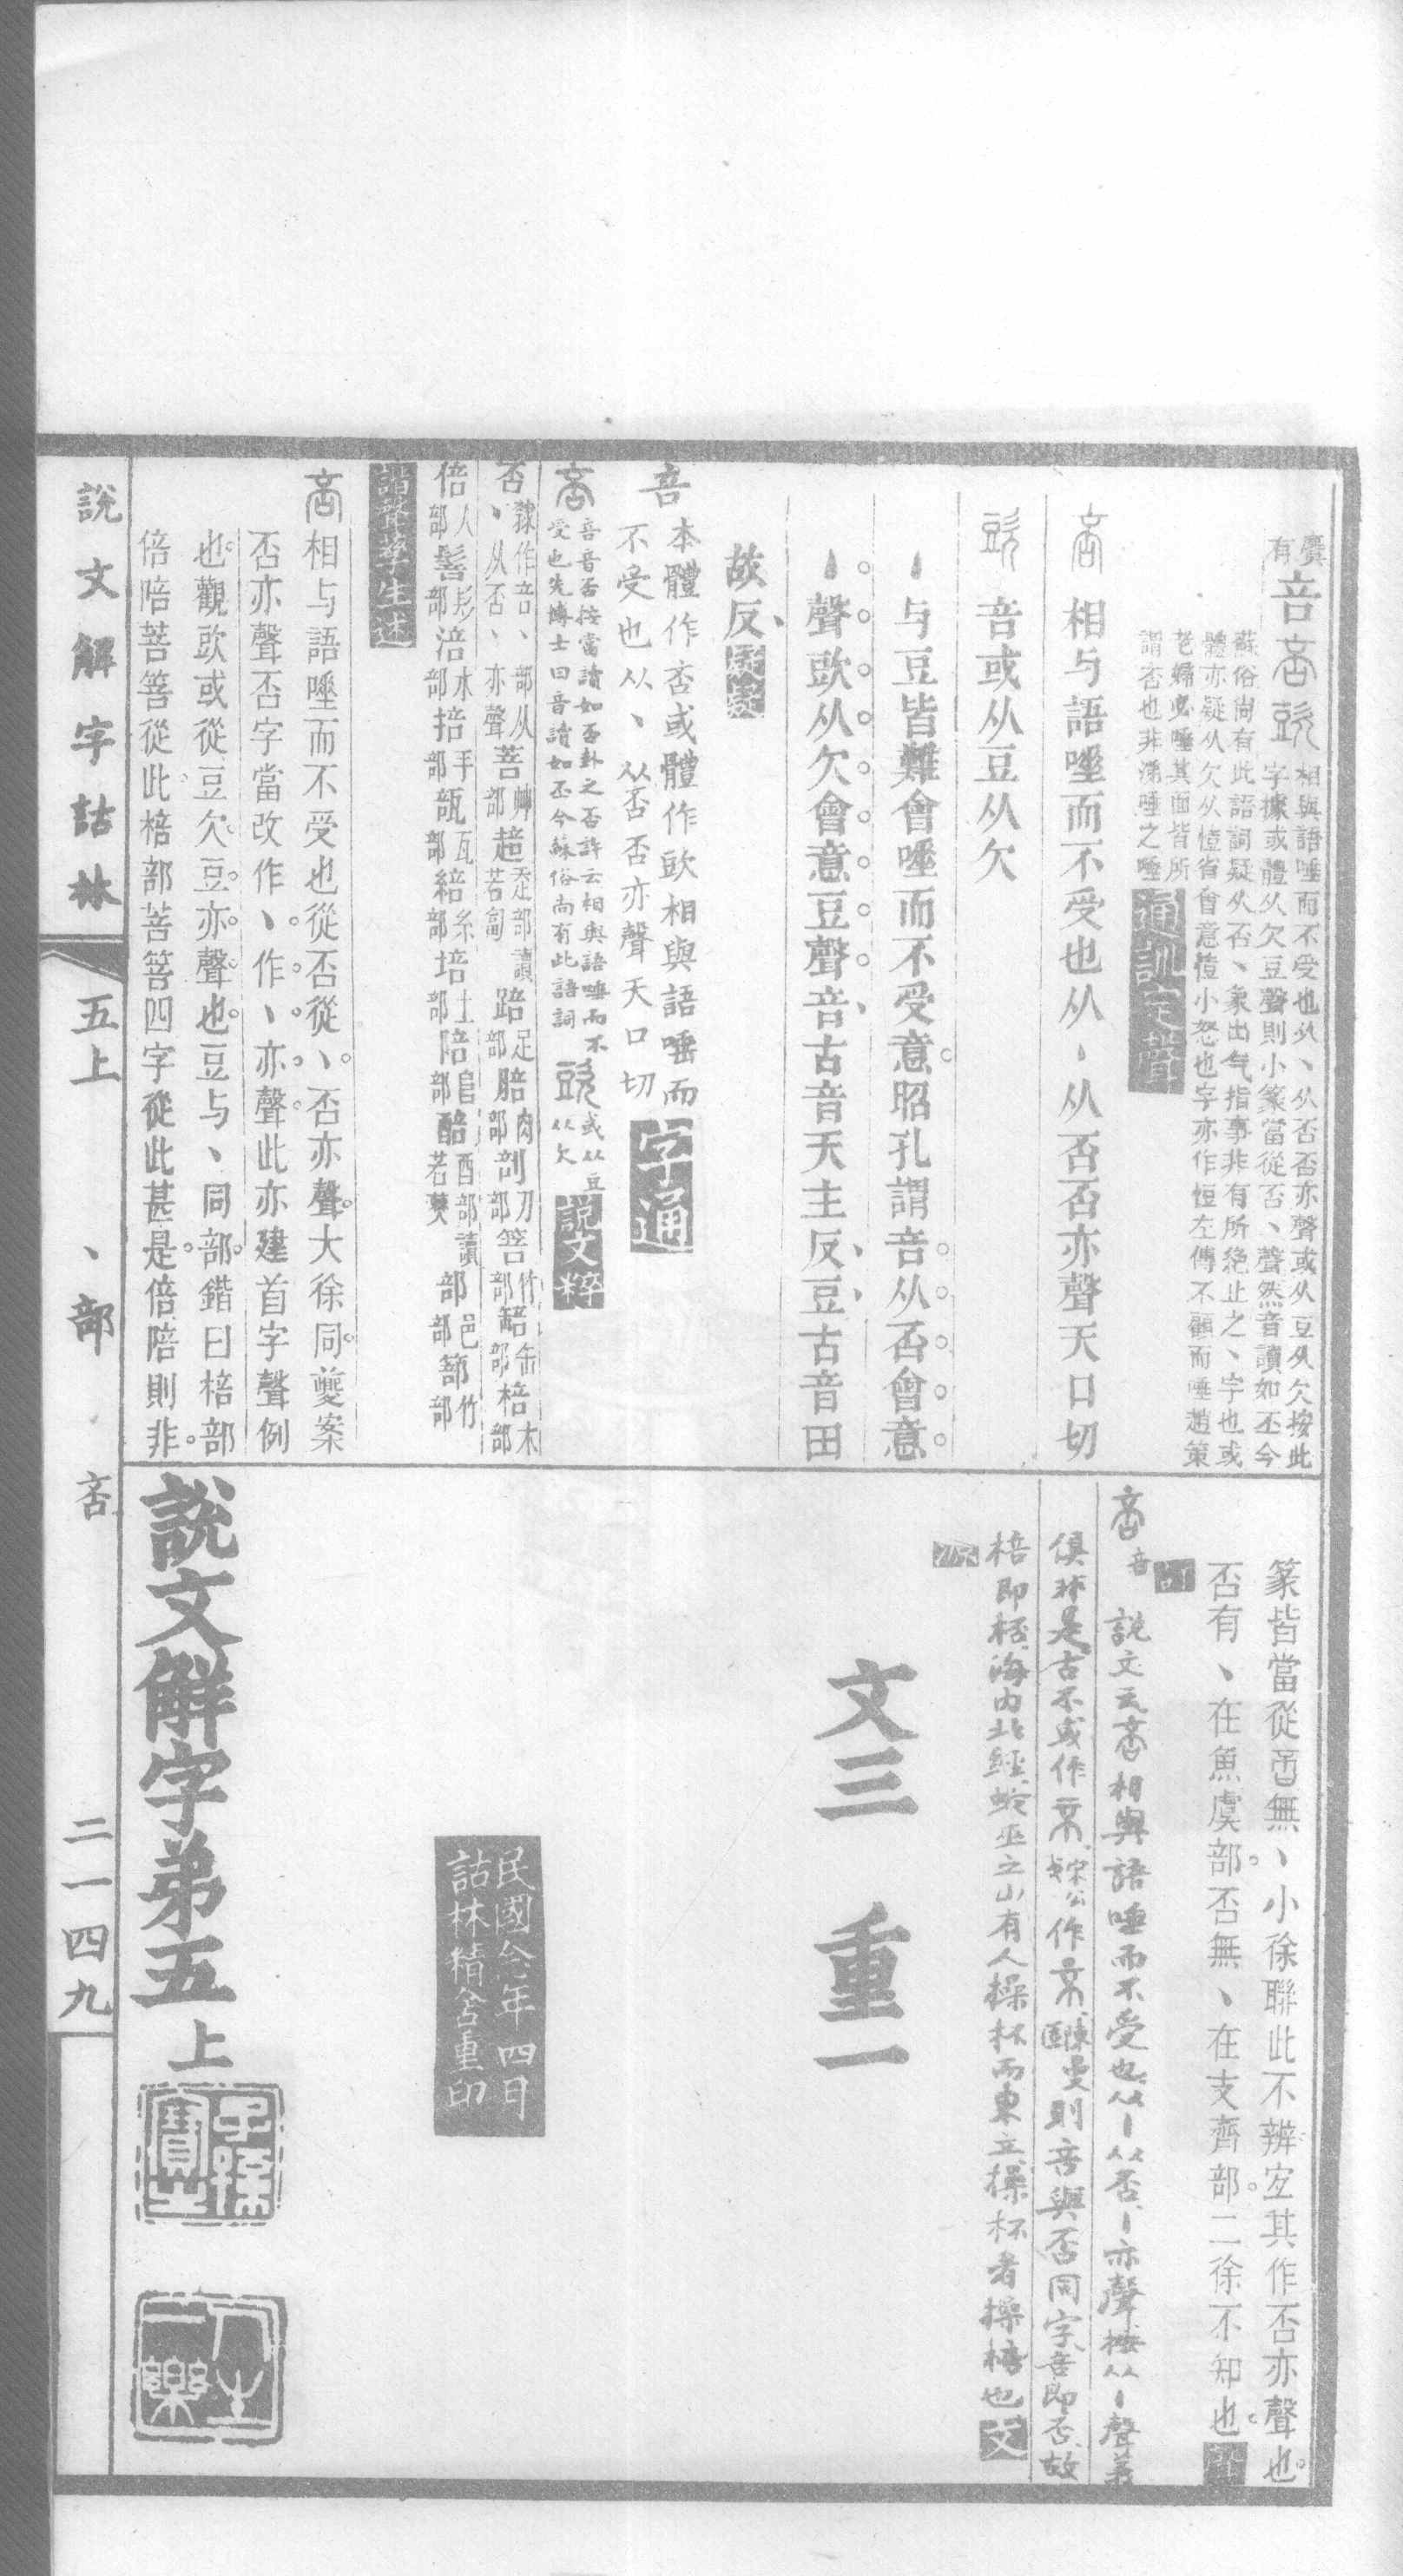 有
音
相與語唾而不受也从丶从否否亦聲或从豆从欠按此
字據或體从欠豆聲則小篆當從否丶聲然音讀如丕今
蘇俗尚有此語詞疑从否丶象出气指事非有所絕止之丶字也或
體亦疑从欠从愷省會意愷小怒也字亦作恒左傳不顧而唾趙策
老婦必唾其面皆所
謂否也非涕唾之唾
通訓定聲
相与語唾而不受也从丶从否否亦聲天口切
音或从豆从欠
丶与豆皆難會唾而不受意昭孔謂音从否會意
丶聲歐从欠會意豆聲音古音天主反豆古音田
故反
音
本體作否或體作歐相與語唾而
不受也从丶从否否亦聲天口切
字通
音音否按當讀如否卦之否許云相與語唾而不
受也先博士曰音讀如丕今蘇俗尚有此語詞
或从豆
从欠
說文粹
否隸作音丶部从丶从否丶亦聲菩艸部趙走部讀若匐踣足部腤肉部剖刀部箁竹部䍌缶部棓木部
倍人部髻髟部涪水部掊手部瓿瓦部綹糸部培土部陪𨸏部醅酉部讀若僰部邑部篰竹部
諧聲孳生述
相与語唾而不受也從否從丶否亦聲大徐同夔案
否亦聲否字當改作丶作丶亦聲此亦建首字聲例
也觀歐或從豆欠豆亦聲也豆与丶同部鍇曰棓部
倍陪菩箁從此棓部菩箁四字從此甚是倍陪則非
篆皆當從音無丶小徐聯此不辨宐其作否亦聲也
否有丶在魚虞部否無丶在支齊部二徐不知也
音
說文云音相與語唾而不受也从丶从否丶亦聲按从丶聲義
俱非是古不或作
宋公作
陳曼則音與否同字音即否故
棓即桮海內北經蛇巫之山有人操杯而東立操杯者操棓也
文
文三　重一
民國今年四月
詁林精舍重印
說文解字弟五上
子孫寶之
人生一樂
說文解字詁林
五上
丶部
音
二一四九